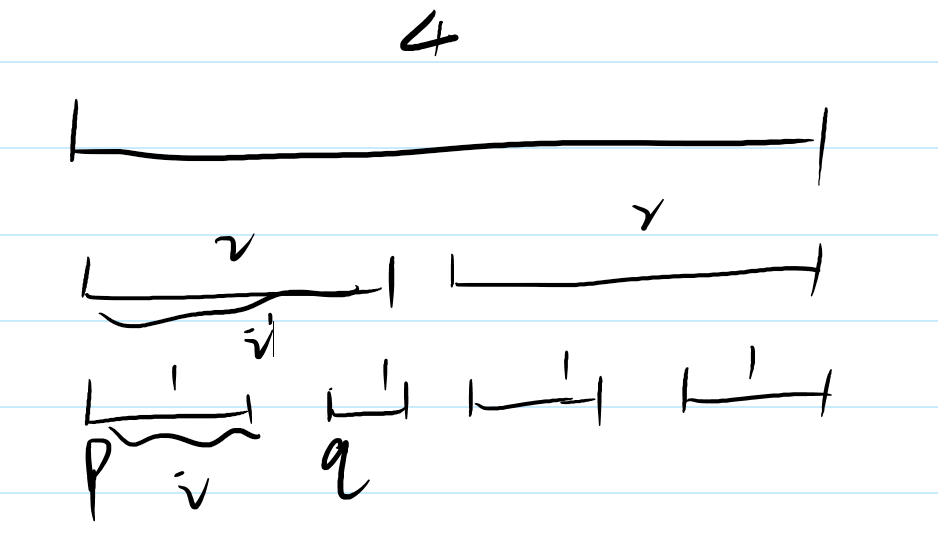 4
2 2
1 1 1 1
p q